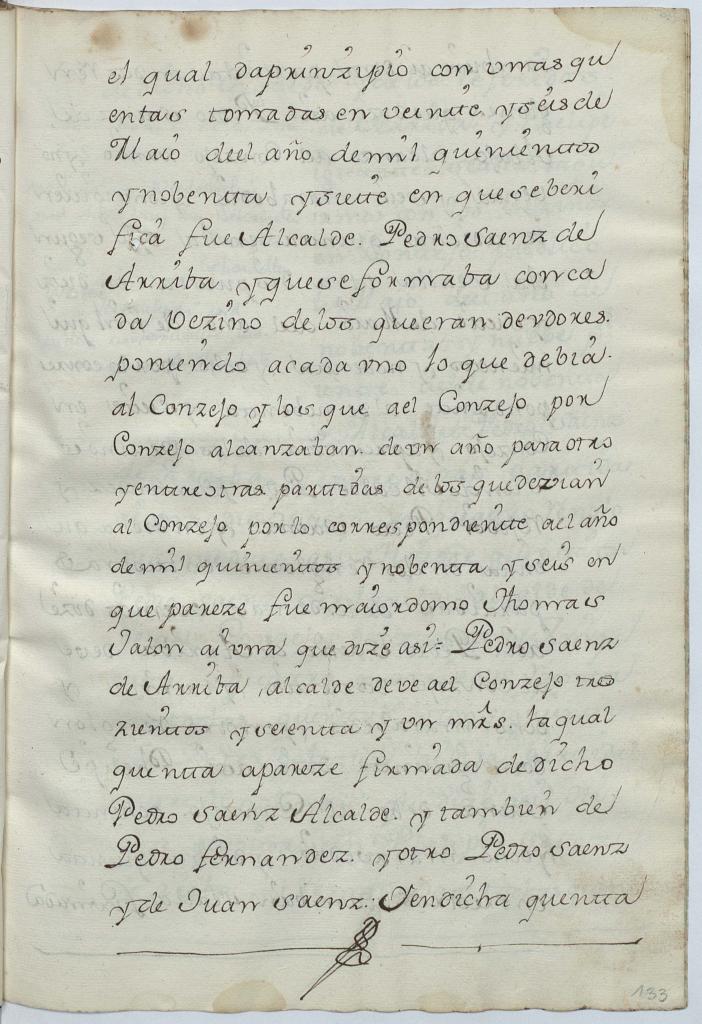 el qual daprinzipio con unas qu
entas tomadas en veintte y seis de
Maio deel año de mil quinienttos
y nobentta y siette en que se beri
fica fue Alcalde. Pedro Saenz de
Arriba y que se formaba con ca
da vezino de los que eran deudores.
poniendo acada uno lo que debia.
al Conzejo y los que ael Conzejo por
Conzejo alcanzaban. de un año para otro
y entre otras parttidas de los que dezian
al Conzejo por lo correspondientte ael año
de mil quinienttos y nobentta y seis en
que pareze fue maiordomo Thomas
Jalon ai una que dize asi = Pedro Saenz
de Arriba, alcalde deve ael Conzejo tres
zienttos y sesentta y un mrs. la qual
quentta apareze firmada de dicho
Pedro Saenz Alcalde. y tambien de
Pedro fernandez. y otro Pedro Saenz
y de Juan Saenz. Yen dicha quentta
133